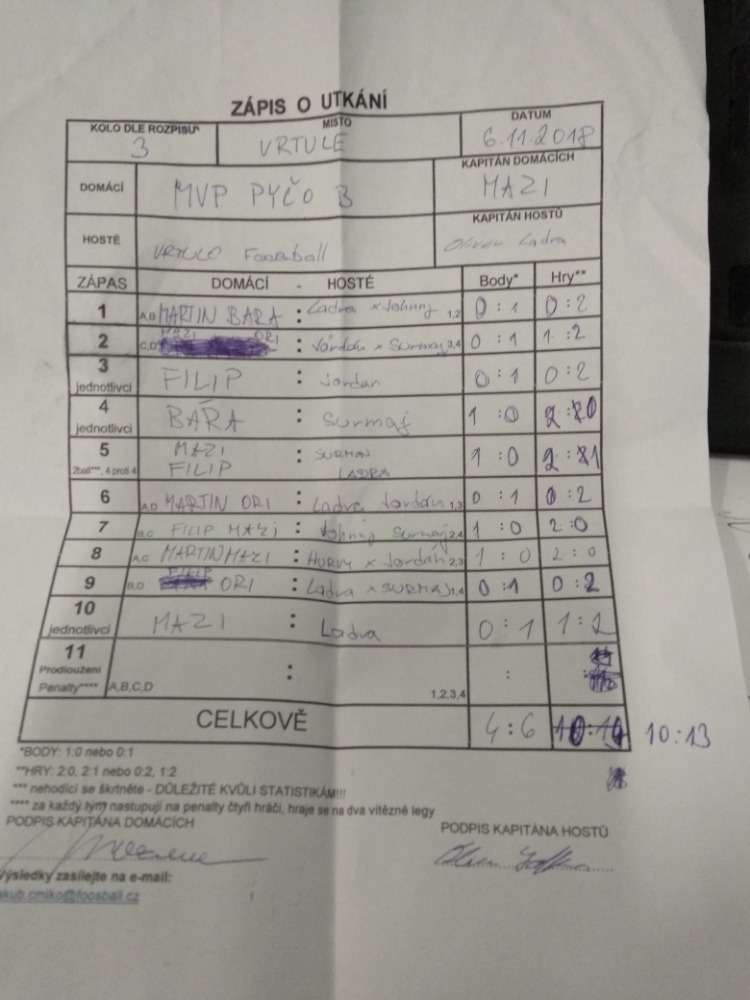 ZÁPIS O UTKÁNÍ
KOLO DLE ROZPISU* MÍSTO DATUM
3 VRTULE 6.11.2018
DOMÁCÍ MVP PYČO B KAPITÁN DOMÁCÍCH
MAZI
HOSTÉ VRTULE Foosball KAPITÁN HOSTŮ
Oliver Ladra
ZÁPAS DOMÁCÍ - HOSTÉ Body* Hry**
1 A,B MARTIN BARA : Ladra x Johnny 1,2 0 : 1 0 : 2
2 C,D MAZI ORI : Jordán x Surmaj 3,4 0 : 1 1 : 2
3 jednotlivci FILIP : Jordan 0 : 1 0 : 2
4 jednotlivci BÁRA : Surmaj 1 : 0 2 : 0
5 2ball***, 4 proti 4 MAZI FILIP : SURMAJ LADRA 1 : 0 2 : 1
6 A,D MARTIN ORI : Ladra Jordán 1,3 0 : 1 0 : 2
7 B,C FILIP MAZI : Johnny Surmaj 2,4 1 : 0 2 : 0
8 A,C MARTIN MAZI : x Jordán 2,3 1 : 0 2 : 0
9 B,D FILIP ORI : Ladra x SURMAJ 1,4 0 : 1 0 : 2
10 jednotlivci MAZI : Ladra 0 : 1 1 : 2
11 Prodloužení : :
Penalty**** A,B,C,D 1,2,3,4
CELKOVĚ 4 : 6 10:13
*BODY: 1:0 nebo 0:1
**HRY: 2:0, 2:1 nebo 0:2, 1:2
*** nehodící se škrtněte - DŮLEŽITÉ KVŮLI STATISTIKÁM!!!
**** za každý tým nastupují na penalty čtyři hráči, hraje se na dva vítězné legy
PODPIS KAPITÁNA DOMÁCÍCH PODPIS KAPITÁNA HOSTŮ
Výsledky zasílejte na e-mail:
jakub.cmiko@foosball.cz